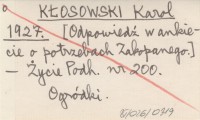 KŁOSOWSKI Karol
1927. [Odpowiedź w ankie-
cie o potrzebach Zakopanego.]
— Życie Podh. nr 200.
Ogródki.